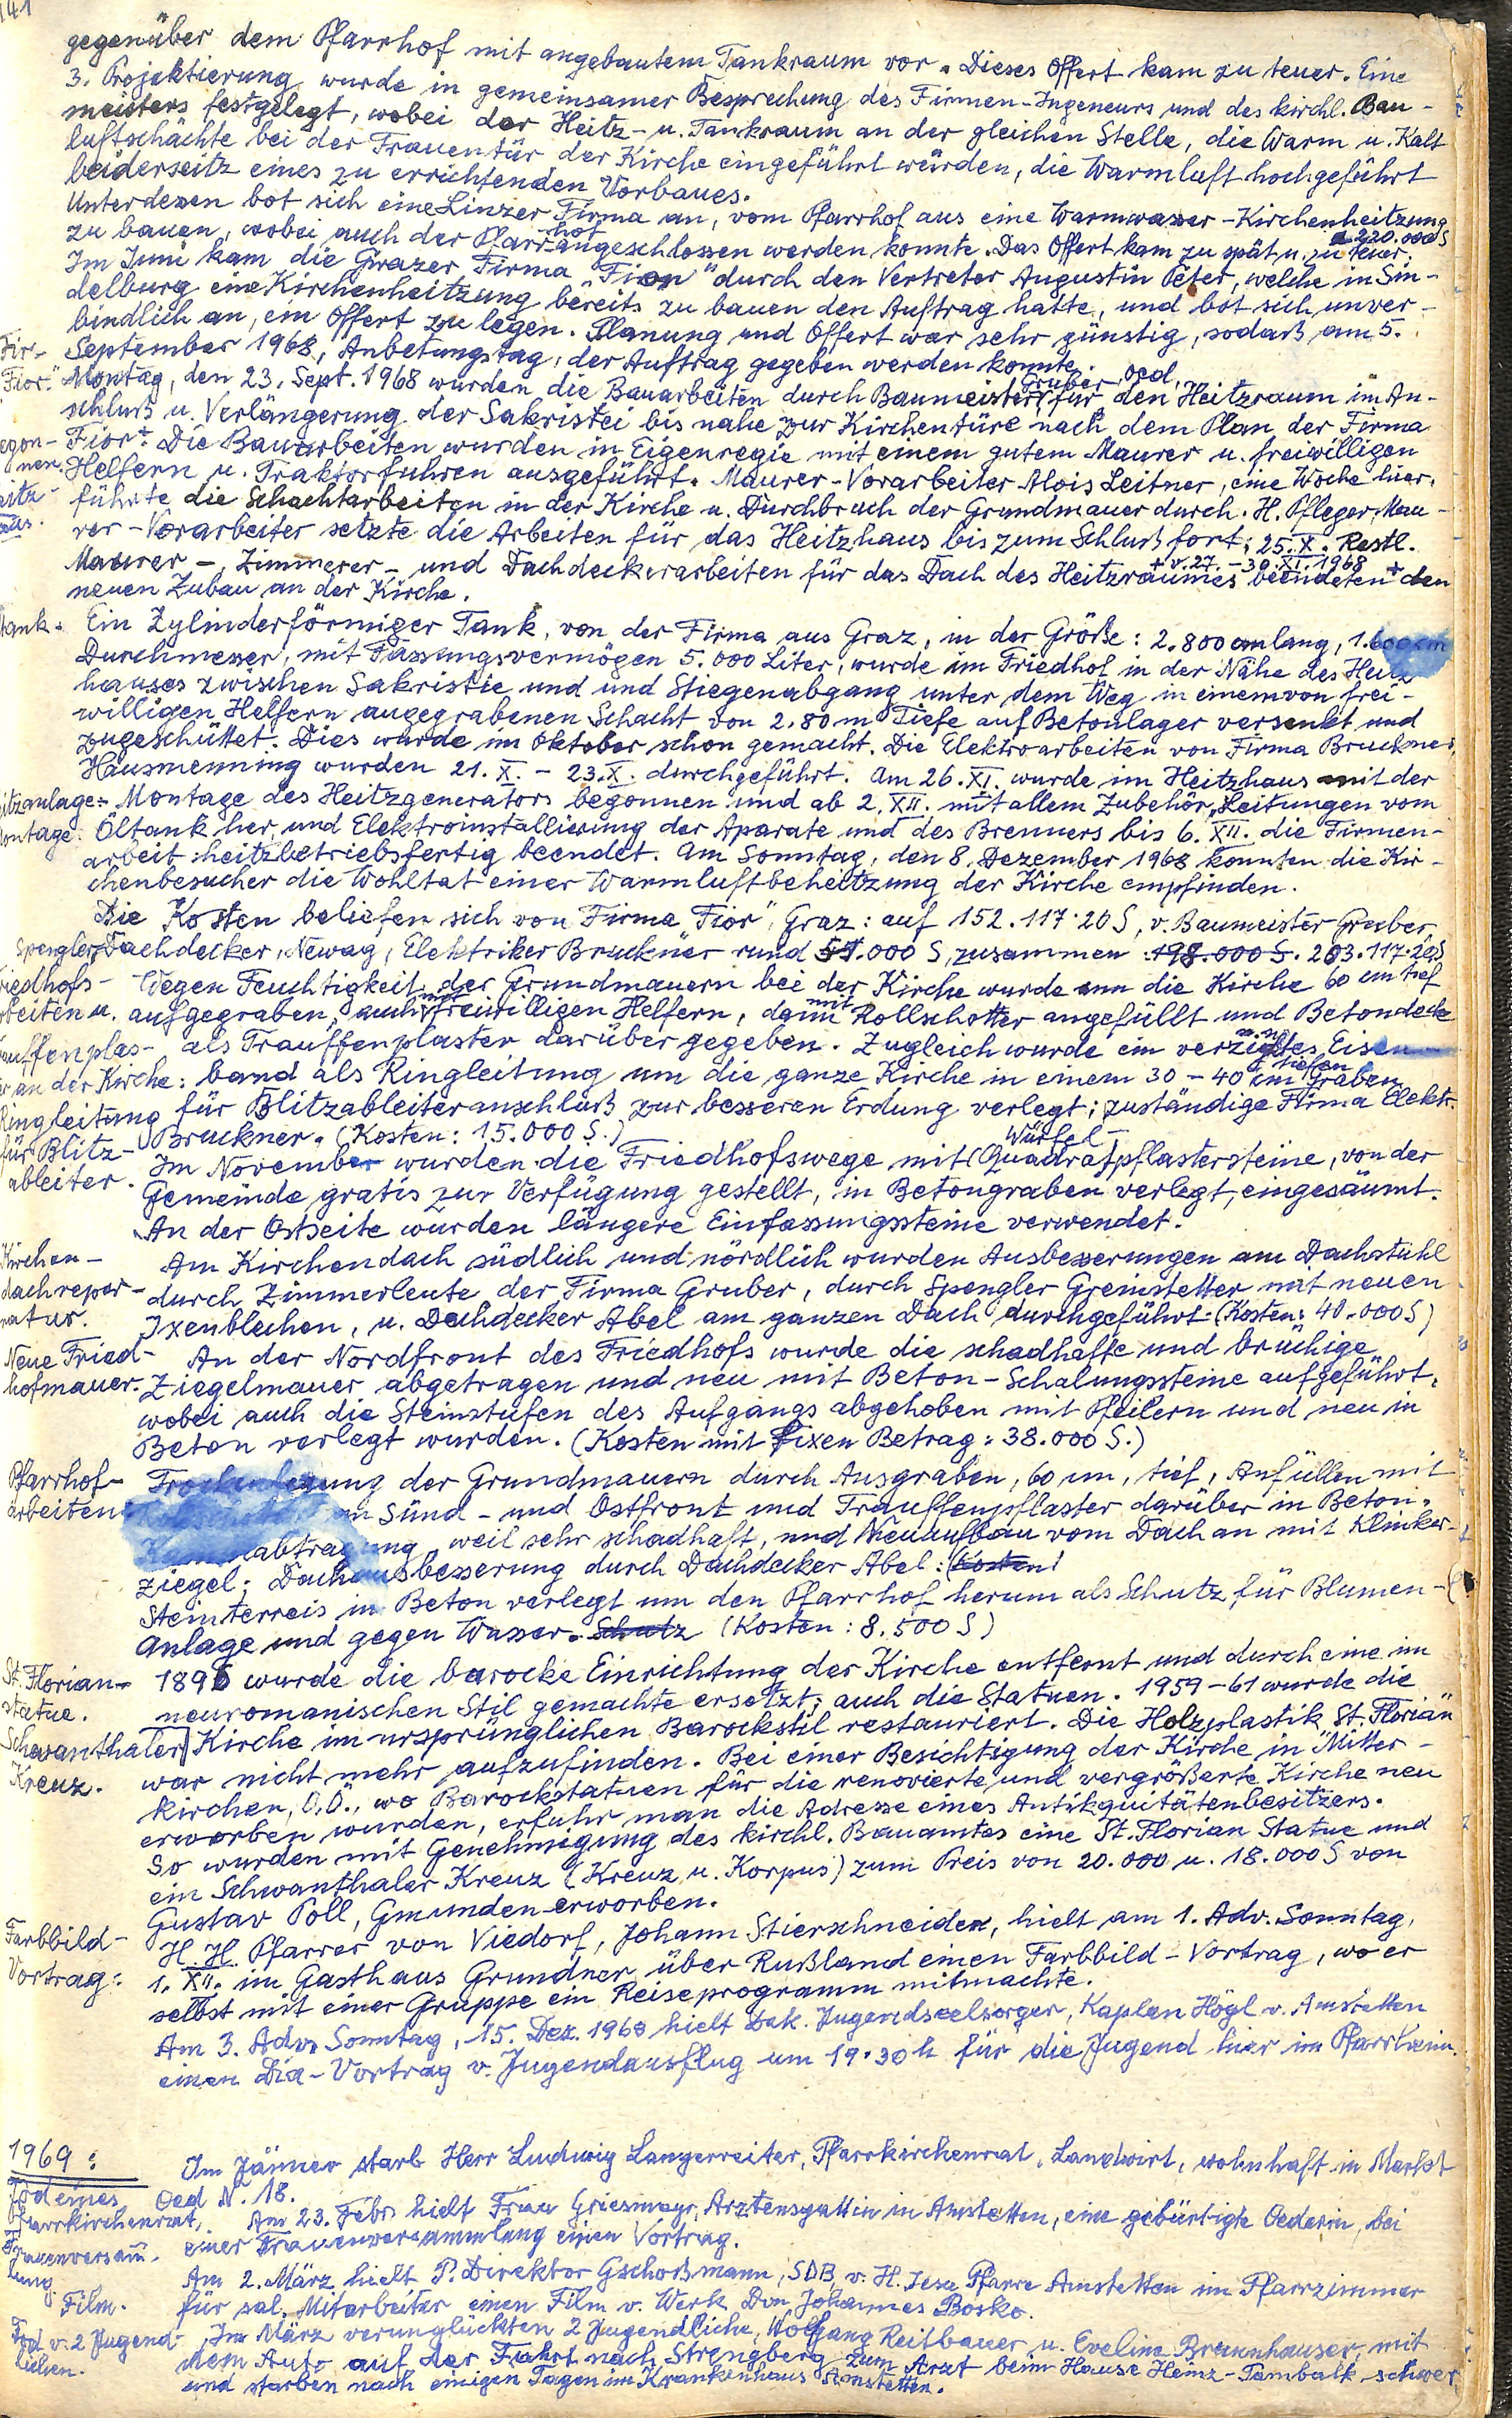 141
gegenüber dem Pfarrhof mit angebautem Tankraum vor. Dieses Offert kam zu teuer. Eine
3. Projektierung wurde in gemeinsamer Besprechung des Firmen-Ingeneurs und des kirchl. Bau-
meisters festgelegt, wobei der Heitz- u. Tankraum an der gleichen Stelle, die Warm u. Kalt
luftschächte bei der Frauentür der Kirche eingeführt würden, die Warmluft hochgeführt
beiderseitz eines zu errichtenden Vorbaues.
Unterdessen bot sich eine Linzer Firma an, vom Pfarrhof aus eine Warmwasser-Kirchenheitzung
zu bauen, wobei auch der Pfarrhof angeschlossen werden konnte. Das Offert kam zu spät u. zu teuer. 220.000 S
Im Juni kam die Grazer Firma "Fior" durch den Vertreter Augustin Peter, welche in Sin-
delburg eine Kirchenheitzung bereits zu bauen den Auftrag hatte, und bot sich unver-
bindlich an, ein Offert zu legen. Planung und Offert war sehr günstig, sodaß am 5.
Fir- September 1968, Anbetungstag, der Auftrag gegeben werden konnte.
Fior." Montag, den 23. Sept. 1968 wurden die Bauarbeiten durch Baumeister Gruber, Oed, für den Heitzraum im An-
schluß u. Verlängerung der Sakristei bis nahe zur Kirchentüre nach dem Plan der Firma
egon- Fior". Die Bauarbeiten wurden in Eigenregie mit einem gutem Maurer u. freiwilligen
nen. Helfern u. Traktorfuhren ausgeführt. Maurer-Vorarbeiter Alois Leitner, eine Woche hier,
eitz- führte die Schachtarbeiten in der Kirche u. Durchbruch der Grundmauer durch. H. Pfleger, Mau-
aus. rer-Vorarbeiter setzte die Arbeiten für das Heitzhaus bis zum Schluß fort; 25. X. Restl.
Maurer-, Zimmerer- und Dachdeckerarbeiten für das Dach des Heitzraumes + v. 27. - 30. XI. 1968 beendeten + den
neuen Zubau an der Kirche.
Tank. Ein Zylinderförmiger Tank, von der Firma aus Graz, in der Größe: 2.800 cm lang, 1.600 cm
Durchmesser, mit Fassungsvermögen 5.000 Liter, wurde im Friedhof in der Nähe des Heitz
hauses zwischen Sakristie und und Stiegenabgang unter dem Weg in einem von frei-
willigen Helfern ausgegrabenen Schacht von 2,80 m Tiefe auf Betonlager versenkt und
zugeschüttet. Dies wurde im Oktober schon gemacht. Die Elektroarbeiten von Firma Bruckner,
Hausmenning wurden 21. X. - 23. X. durchgeführt. Am 26. XI. wurde im Heitzhaus mit der
itzanlage: Montage des Heitzgenerators begonnen und ab 2. XII. mit allem Zubehör, Leitungen vom
Montage. Öltank her, und Elektroinstallierung der Aparate und des Brenners bis 6. XII. die Firmen-
arbeit heitzbetriebsfertig beendet. Am Sonntag, den 8. Dezember 1968 konnten die Kir-
chenbesucher die Wohltat einer Warmluftbeheitzung der Kirche empfinden.
Die Kosten beliefen sich von Firma "Fior", Graz: auf 152.117.20 S, v. Baumeister Gruber,
Spengler, Dachdecker, Newag, Elektriker Bruckner rund 51.000 S, zusammen 198.000 S. 203.117.20 S
riedhofs- Wegen Feuchtigkeit der Grundmauern bei der Kirche wurde um die Kirche 60 cm tief
rbeiten u. aufgegraben, auch mit freiwilligen Helfern, dann mit Rollschotter angefüllt und Betondecke
auffenplas- als Trauffenplaster darüber gegeben. Zugleich wurde ein verzinktes Eisen
er an der Kirche: band als Ringleitung um die ganze Kirche in einem 30-40 cm tiefen Graben
Ringleitung für Blitzableiteranschluß zur besseren Erdung verlegt; zuständige Firma Elektr.
für Blitz- Bruckner. (Kosten: 15.000 S.)
ableiter. Im November wurden die Friedhofswege mit (Würfel- Quadratpflastersteine, von der
Gemeinde gratis zur Verfügung gestellt, in Betongraben verlegt, eingesäumt.
An der Ostseite wurden längere Einfassungssteine verwendet.
Kirchen- Am Kirchendach südlich und nördlich wurden Ausbesserungen am Dachstuhl
dachrepar- durch Zimmerleute der Firma Gruber, durch Spengler Greinstetter mit neuen
natur. Ixenblechen, u. Dachdecker Abel am ganzen Dach durchgeführt. (Kosten: 40.000 S)
Neue Fried- An der Nordfront des Friedhofs wurde die schadhafte und brüchige
hofmauer. Ziegelmauer abgetragen und neu mit Beton-Schalungssteine aufgeführt,
wobei auch die Steinstufen des Aufgangs abgehoben mit Pfeilern und neu in
Beton verlegt wurden. (Kosten mit fixen Betrag: 38.000 S.)
Pfarrhof- Trockenlegung der Grundmauern durch Ausgraben, 60 cm, tief, Anfüllen mit
arbeiten: an Sünd- und Ostfront und Trauffenpflaster darüber in Beton.
abtragung, weil sehr schadhaft, und Neuaufbau vom Dach an mit Klinker-
ziegel; Dachausbesserung durch Dachdecker Abel: (Kosten)
Steinterreis in Beton verlegt um den Pfarrhof herum als Schutz für Blumen-
Anlage und gegen Wasser. Schutz (Kosten: 8.500 S)
St. Florian- 1896 wurde die barocke Einrichtung der Kirche entfernt und durch eine im
statue. neuromanischen Stil gemachte ersetzt; auch die Statuen. 1959-61 wurde die
Schwanthaler Kirche im ursprünglichen Barockstil restauriert. Die Holzplastik "St. Florian"
Kreuz. war nicht mehr aufzufinden. Bei einer Besichtigung der Kirche in Mitter-
kirchen, O.Ö., wo Barockstatuen für die renovierte und vergrößerte Kirche neu
erworben wurden, erfuhr man die Adresse eines Antikquitätenbesitzers.
So wurden mit Genehmigung des kirchl. Bauamtes eine St. Florian Statue und
ein Schwanthaler Kreuz (Kreuz u. Korpus) zum Preis von 20.000 u. 18.000 S von
Gustav Poll, Gmunden erworben.
Farbbild- H. H. Pfarrer von Viedorf, Johann Stierschneider, hielt am 1. Adv. Sonntag,
Vortrag: 1. XII. im Gasthaus Grundner über Rußland einen Farbbild-Vortrag, wo er
selbst mit einer Gruppe ein Reiseprogramm mitmachte.
Am 3. Adv. Sonntag, 15. Dez. 1968 hielt Dek. Jugendseelsorger, Kaplan Högl v. Amstetten
einen Dia-Vortrag v. Jugendausflug um 19.30 h für die Jugend hier im Pfarrheim.
1969:
Im Jänner starb Herr Ludwig Langerreiter, Pfarrkirchenrat, Landwirt, wohnhaft in Markt
Tod eines Oed N. 18.
Pfarrkirchenrat, Am 23. Febr. hielt Frau Griesmayr, Arztensgattin in Amstetten, eine gebürtigte Oederin, bei
Frauenversam- einer Frauenversammlung einen Vortrag.
lung. Am 2. März hielt P. Direktor Gschoßmann, SDB, v. H. Jesu Pfarre Amstetten im Pfarrzimmer
Film. für sal. Mitarbeiter einen Film v. Werk Don Johannes Bosko.
Tod v. 2 Jugend- Im März verunglückten 2 Jugendliche, Wolfgang Reitbauer u. Eveline Braunhauser, mit
lichen. dem Auto auf der Fahrt nach Strengberg zum Arzt beim Hause Heinz-Tambalk schwer
und starben nach einigen Tagen im Krankenhaus Amstetten.